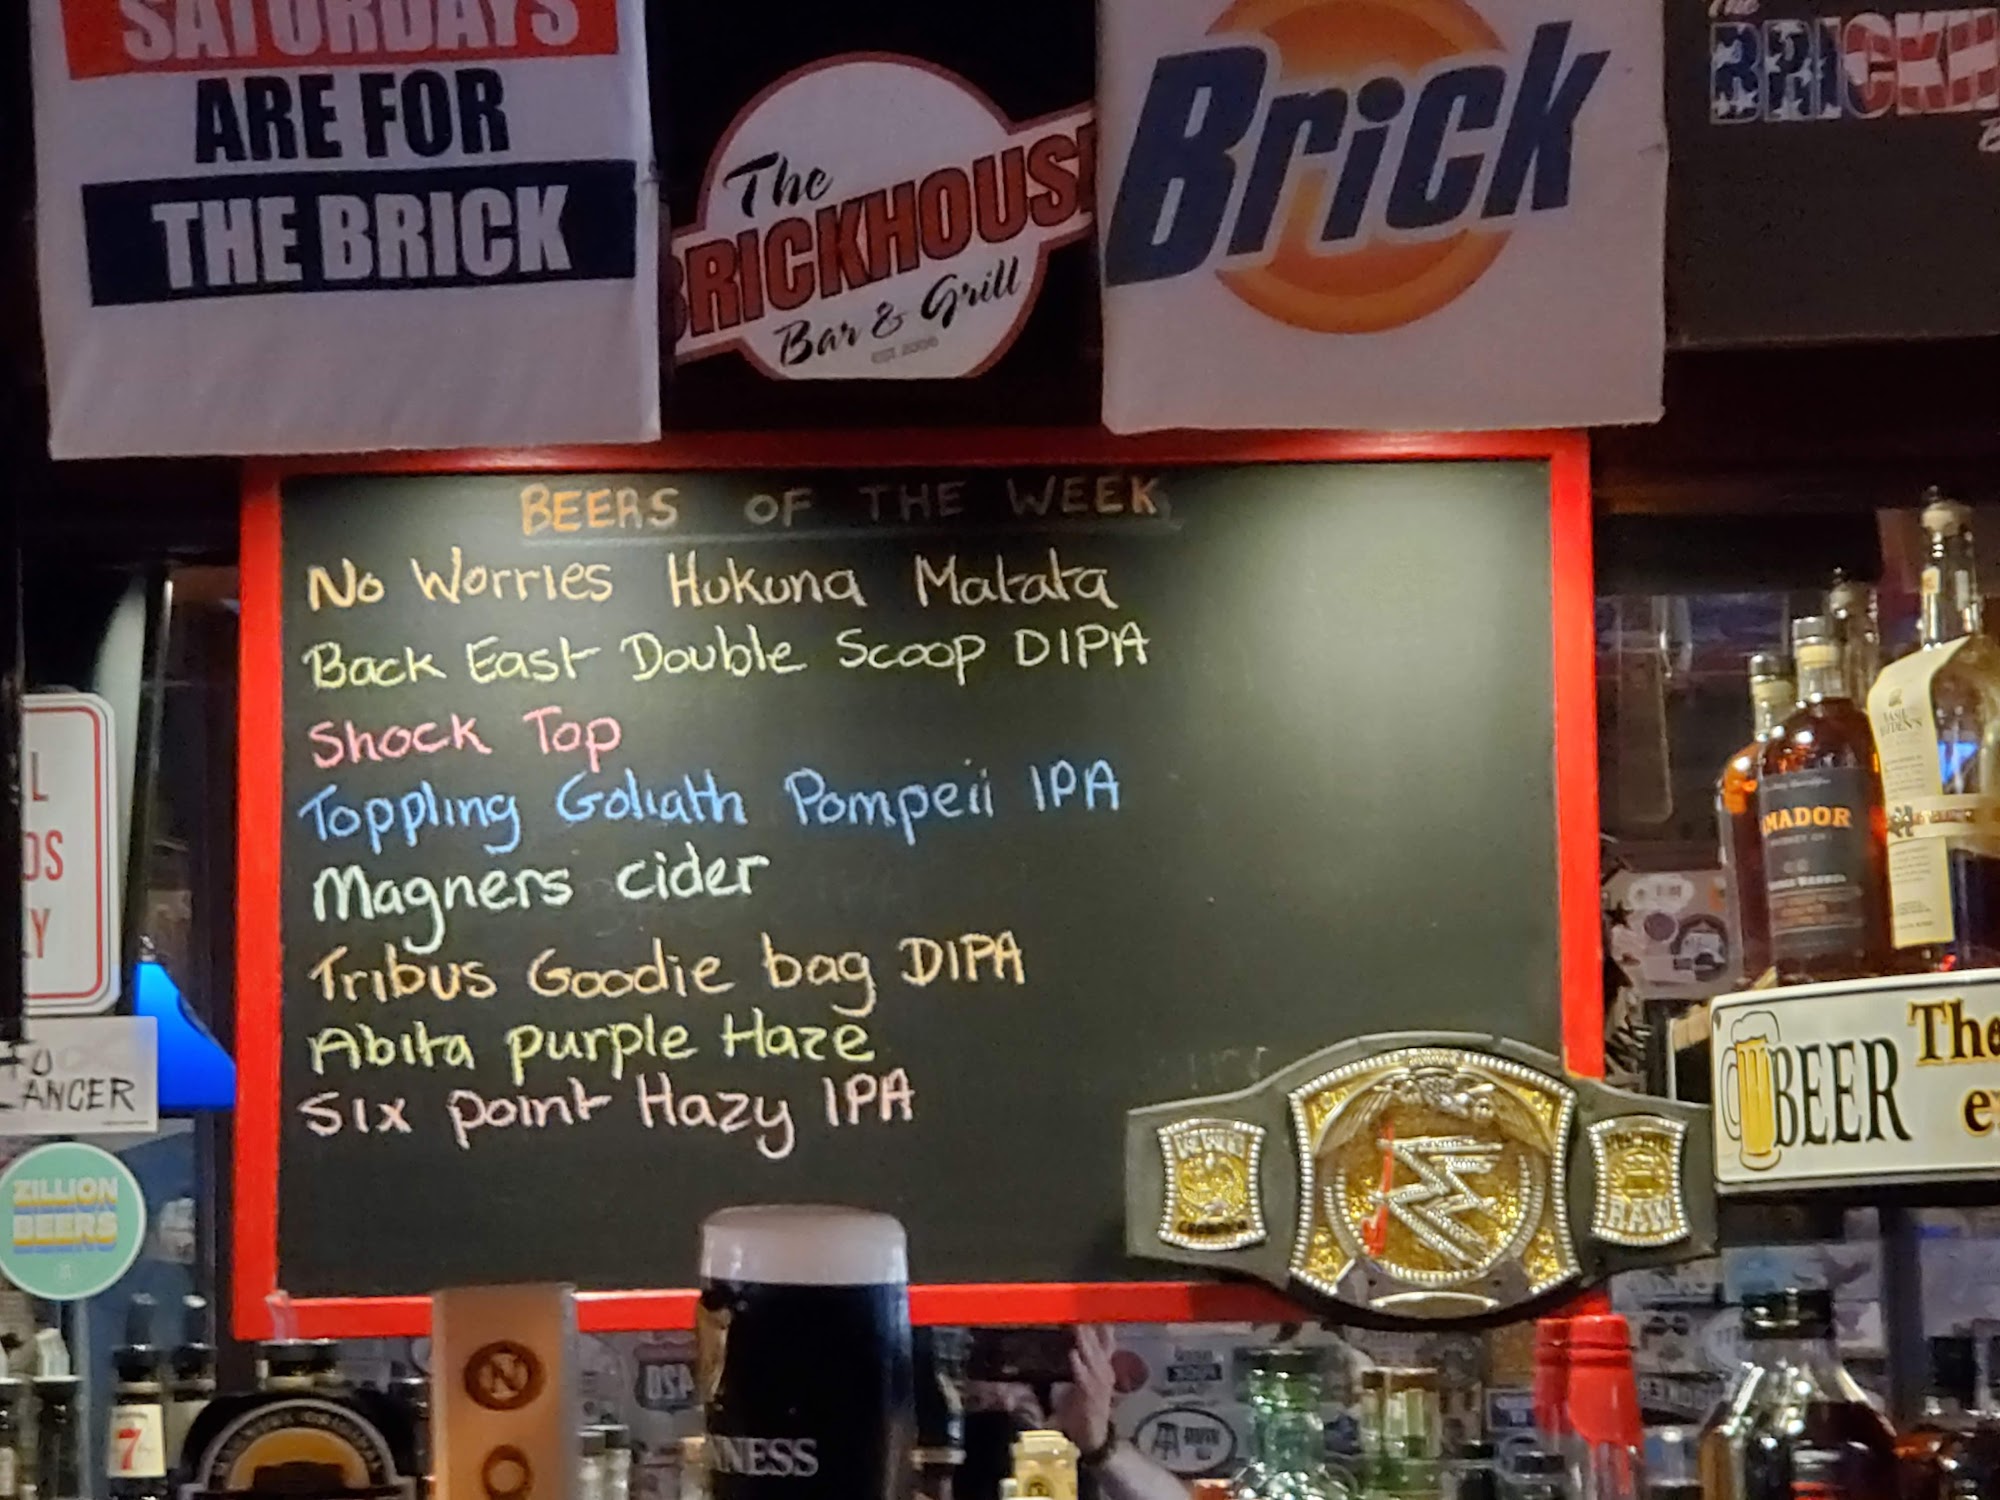 SATURDAYS
ARE FOR
THE BRICK
The
BRICKHOUSE
Bar & Grill
EST. 2006
Brick
The
BRICKH
BEERS OF THE WEEK
No Worries Hukuna Matata
Back East Double Scoop DIPA
Shock Top
Toppling Goliath Pompeii IPA
Magners cider
Tribus Goodie bag DIPA
Abita purple Haze
Six point Hazy IPA
L
DS
LY
ANCER
ZILLION
BEERS
7
N
O
NESS
W
RAW
BASIL
HAYDEN'S
AMADOR
BEER The
e